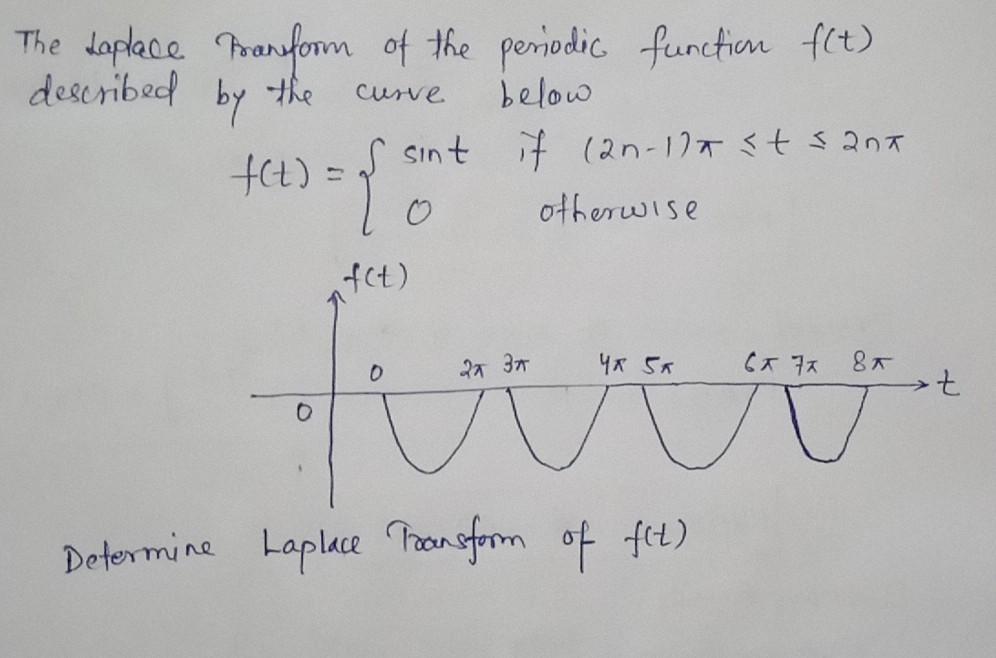 The Laplace Transform of the periodic function f(t)
described by the curve below
f(t) = { sin t if (2n-1)π ≤ t ≤ 2nπ
0 otherwise
f(t)
0 2π 3π 4π 5π 6π 7π 8π
t
0
Determine Laplace Transform of f(t)